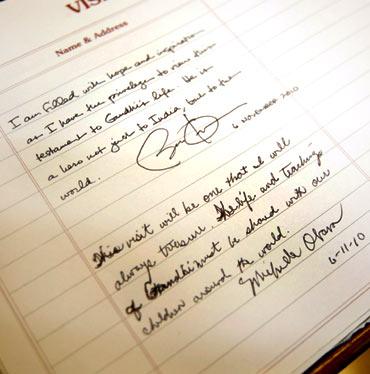 VIS
Name & Address
I am filled with hope and inspiration
as I have the privilege to view this
testament to Gandhi's life. He is
a hero not just to India, but to the
world.
6 NOVEMBER 2010
This visit will be one that I will
always treasure. The life and teachings
of Gandhi must be shared with our
children around the world.
Michelle Obama
6-11-10